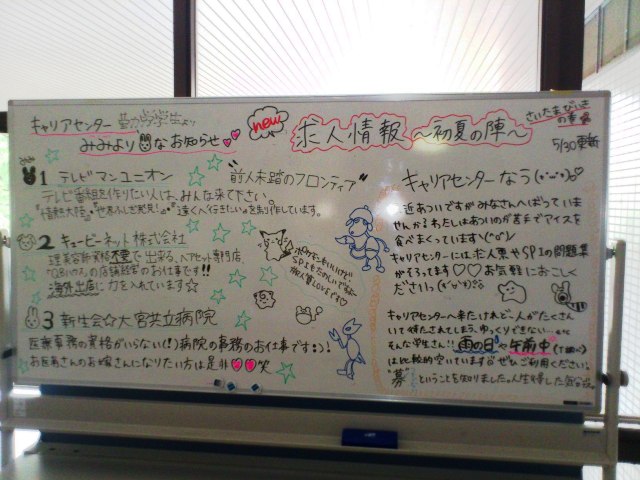 キャリアセンター 勤労学生より
みみよりなお知らせ
new
求人情報 ～初夏の陣～
さいたまびいき
の車
5/30更新
1 テレビマンユニオン
"前人未踏のフロンティア"
テレビ番組を作りたい人は、みんな来て下さい。
"情熱大陸"、"世界ふしぎ発見!"、"遠くへ行きたい"を制作しています。
2 キュービーネット株式会社
理美容師資格不要で出来る、ヘアセット専門店
の店舗経営のお仕事です!!
海外出店に力を入れています☆
ポケモンもいいけど
SPIもたのしいですよー
3 新生会☆大宮共立病院
医療事務の資格がいらない(!)病院の事務のお仕事です:)!
お医者さんのお嫁さんになりたい方は是非♥♥笑
キャリアセンターなう(・ω・)
最近あついですがみなさんへばっていま
せんか?わたしはあついのが苦手でアイスを
食べまくっています＼(^o^)／
キャリアセンターには求人票やSPIの問題集
がそろってます♡♡お気軽においこし
ください。
キャリアセンターへ来たけれど、人がたくさん
いて待たされてしまう、ゆっくりできない…etc
そんな学生さん!!雨の日や午前中
は比較的空いています。ぜひご利用ください。
"募"ということを知りました。人生得した気分です。